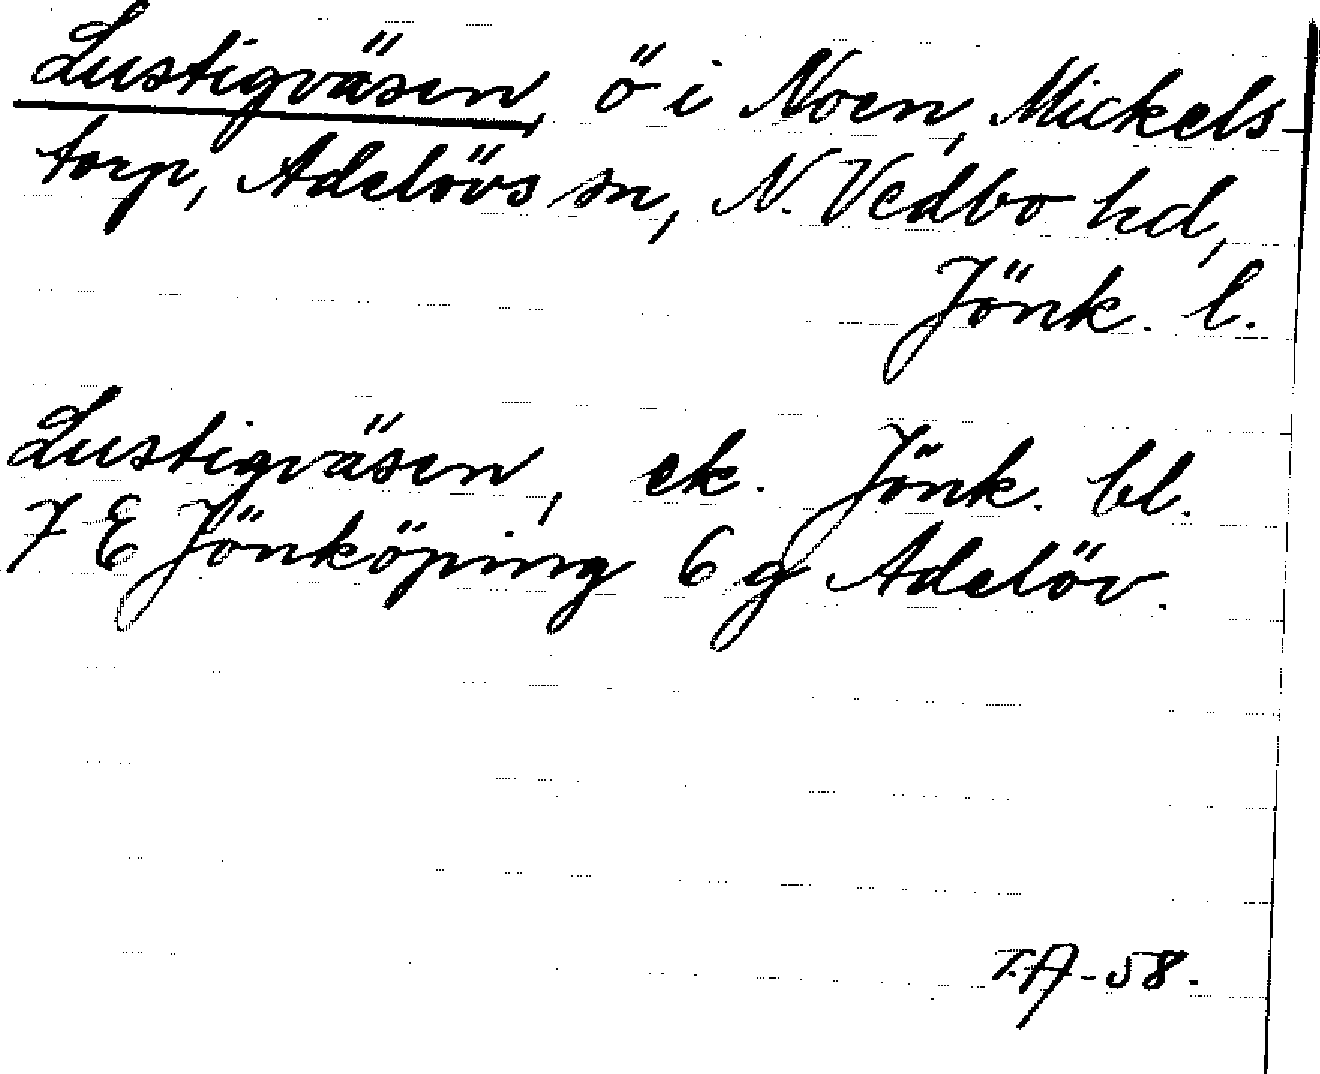 Lustigväsen, ö i Noen, Mickels-
torp, Adelövs sn, N. Vedbo hd,
Jönk. l.
Lustigväsen, ek. Jönk. bl.
7 E Jönköping 6 g Adelöv.
T.A-58.